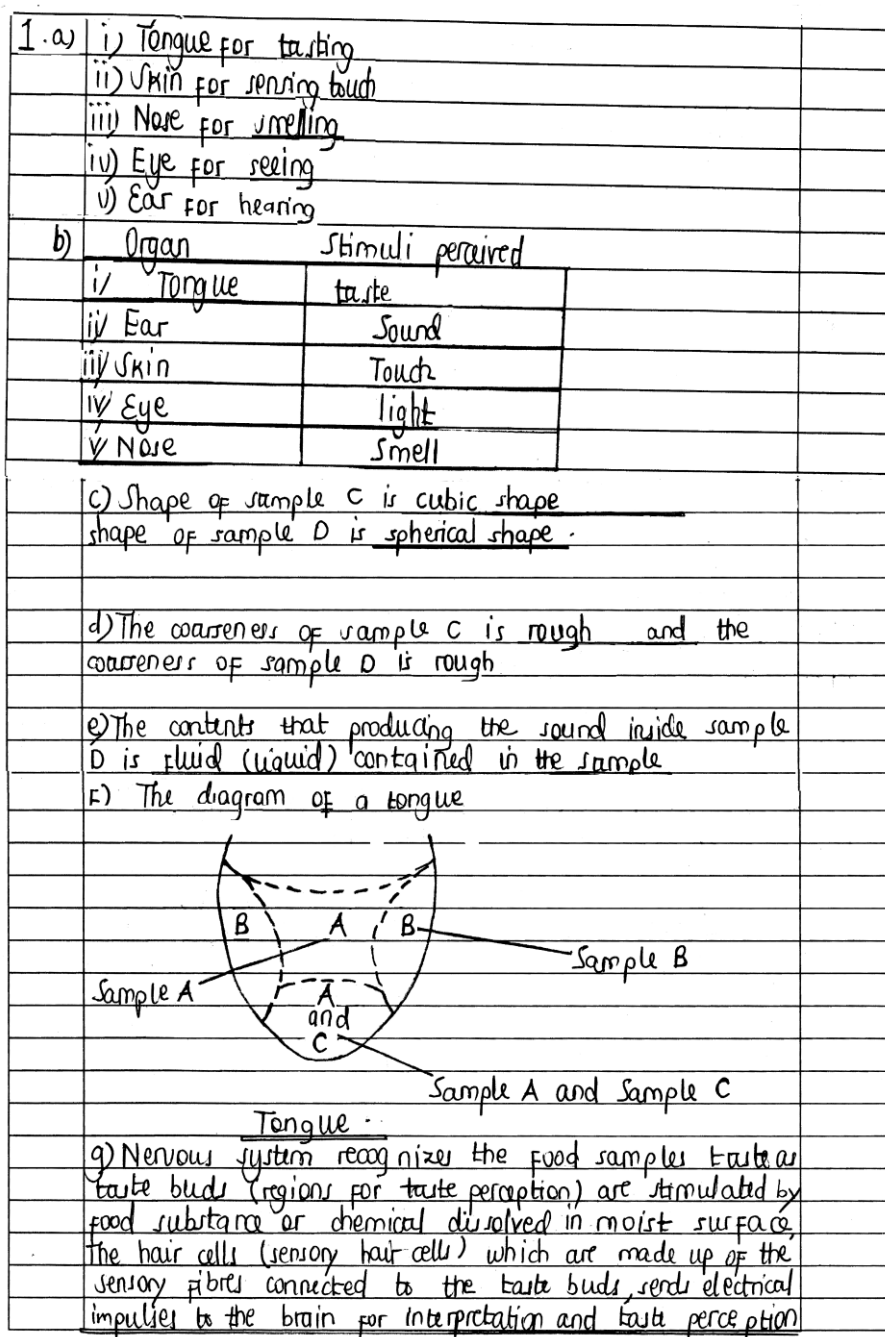 1.a) i) Tongue for tasting
ii) Skin for sensing touch
iii) Nose for smelling
iv) Eye for seeing
v) Ear for hearing
b) Organ Stimuli percived
i/ Tongue taste
ii/ Ear Sound
iii/ Skin Touch
iv/ Eye light
v/ Nose Smell
c) Shape of sample C is cubic shape
shape of sample D is spherical shape.
d) The coarseness of sample C is rough and the
coarseness of sample D is rough
e) The contents that producing the sound inside sample
D is fluid (liquid) contained in the sample
F) The diagram of a tongue
B A B
Sample B
Sample A
A
and
C
Sample A and Sample C
Tongue.
g) Nervous system recognizes the food samples taste as
taste buds (regions for taste perception) are stimulated by
food substance or chemical dissolved in moist surface,
The hair cells (sensory hair cells) which are made up of the
sensory fibres connected to the taste buds, sends electrical
impulses to the brain for interpretation and taste perception